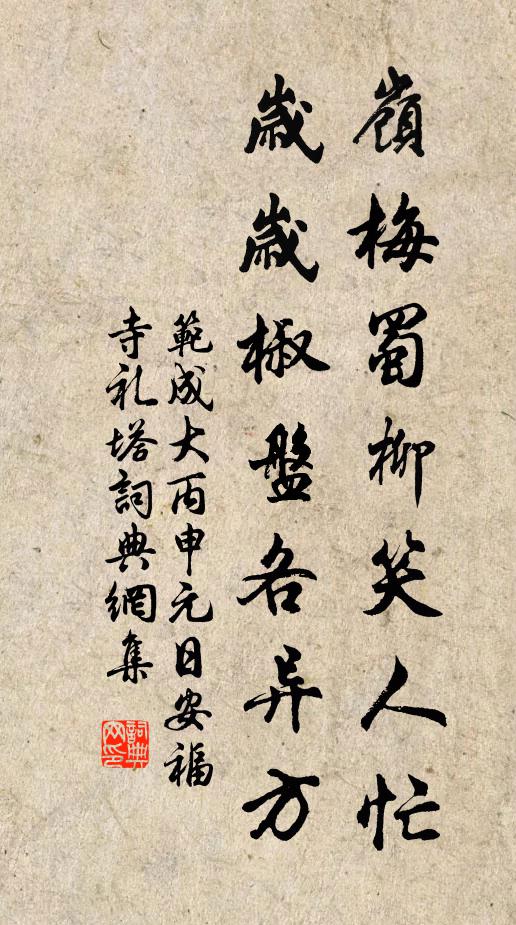 嶺梅蜀柳笑人忙
歲歲椒盤各异方
範成大丙申元日安福
寺礼塔詞典網集
詞典網印